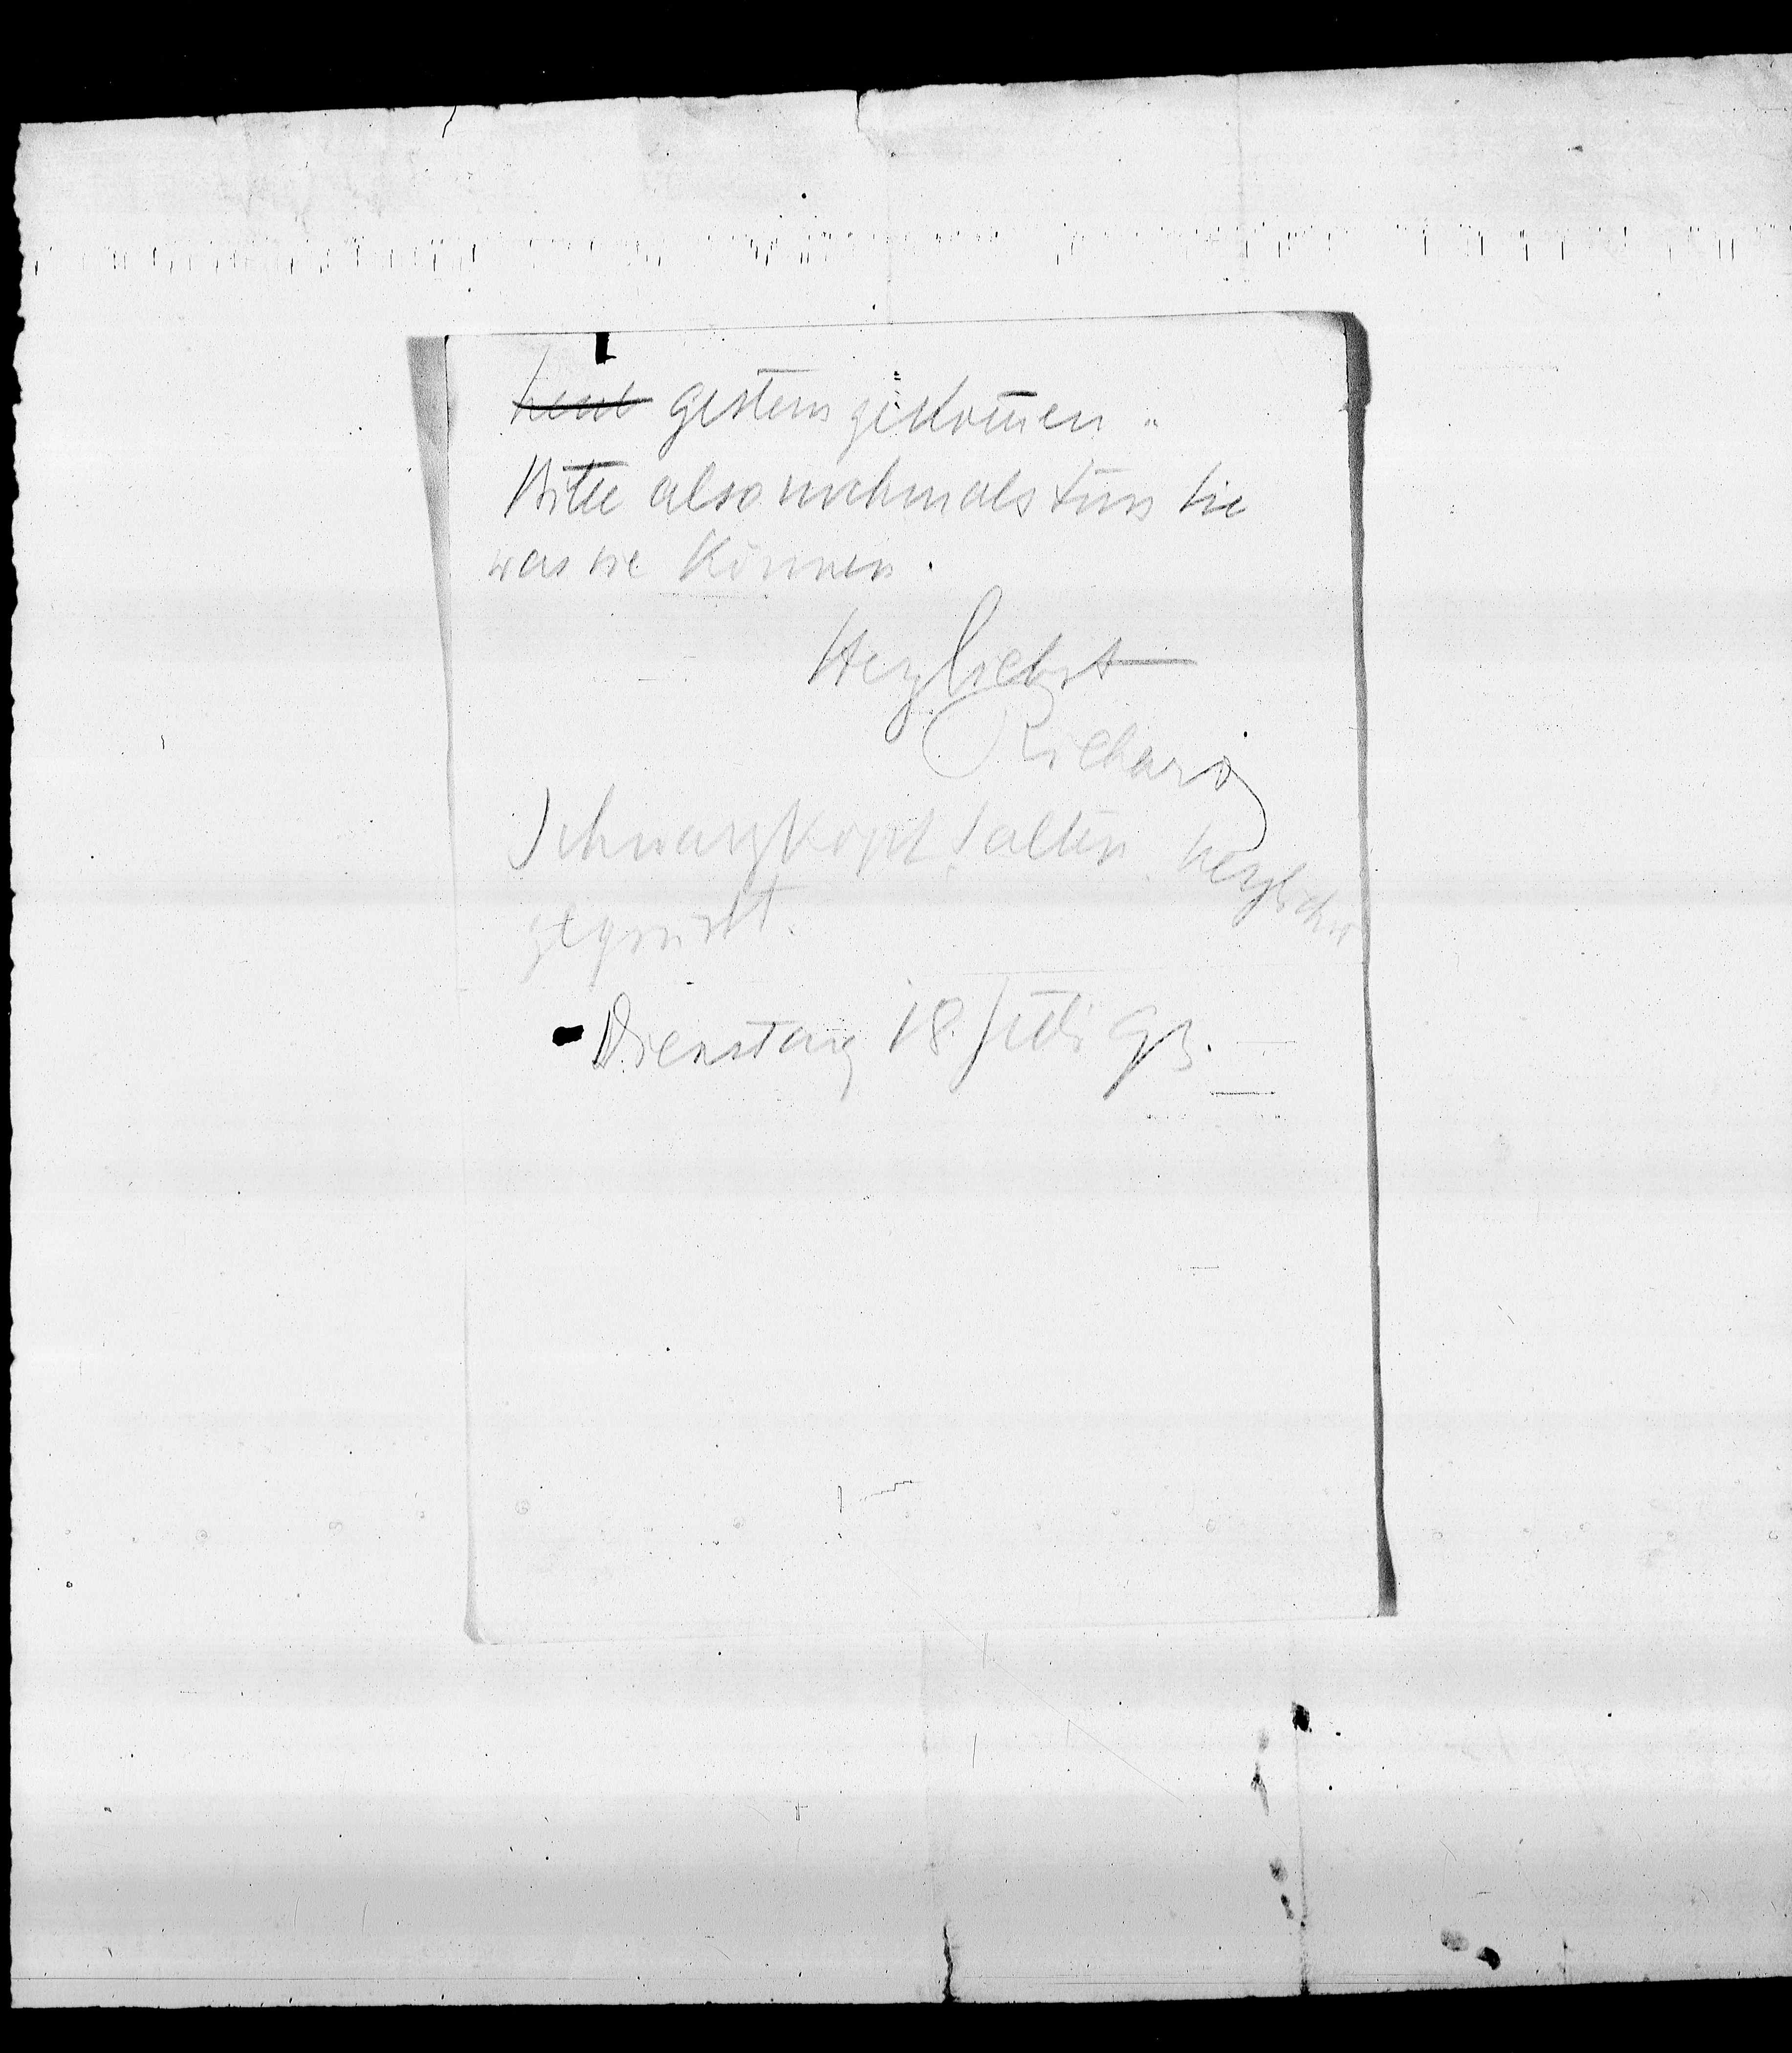 heut gestern gekom̅en.
Bitte also nochmals tun Sie
was sie können.
Herzlichst
Richard
Schwarzkopf, Salten herzlichst
gegrüßt.
Dienstag 18. Juli 93.